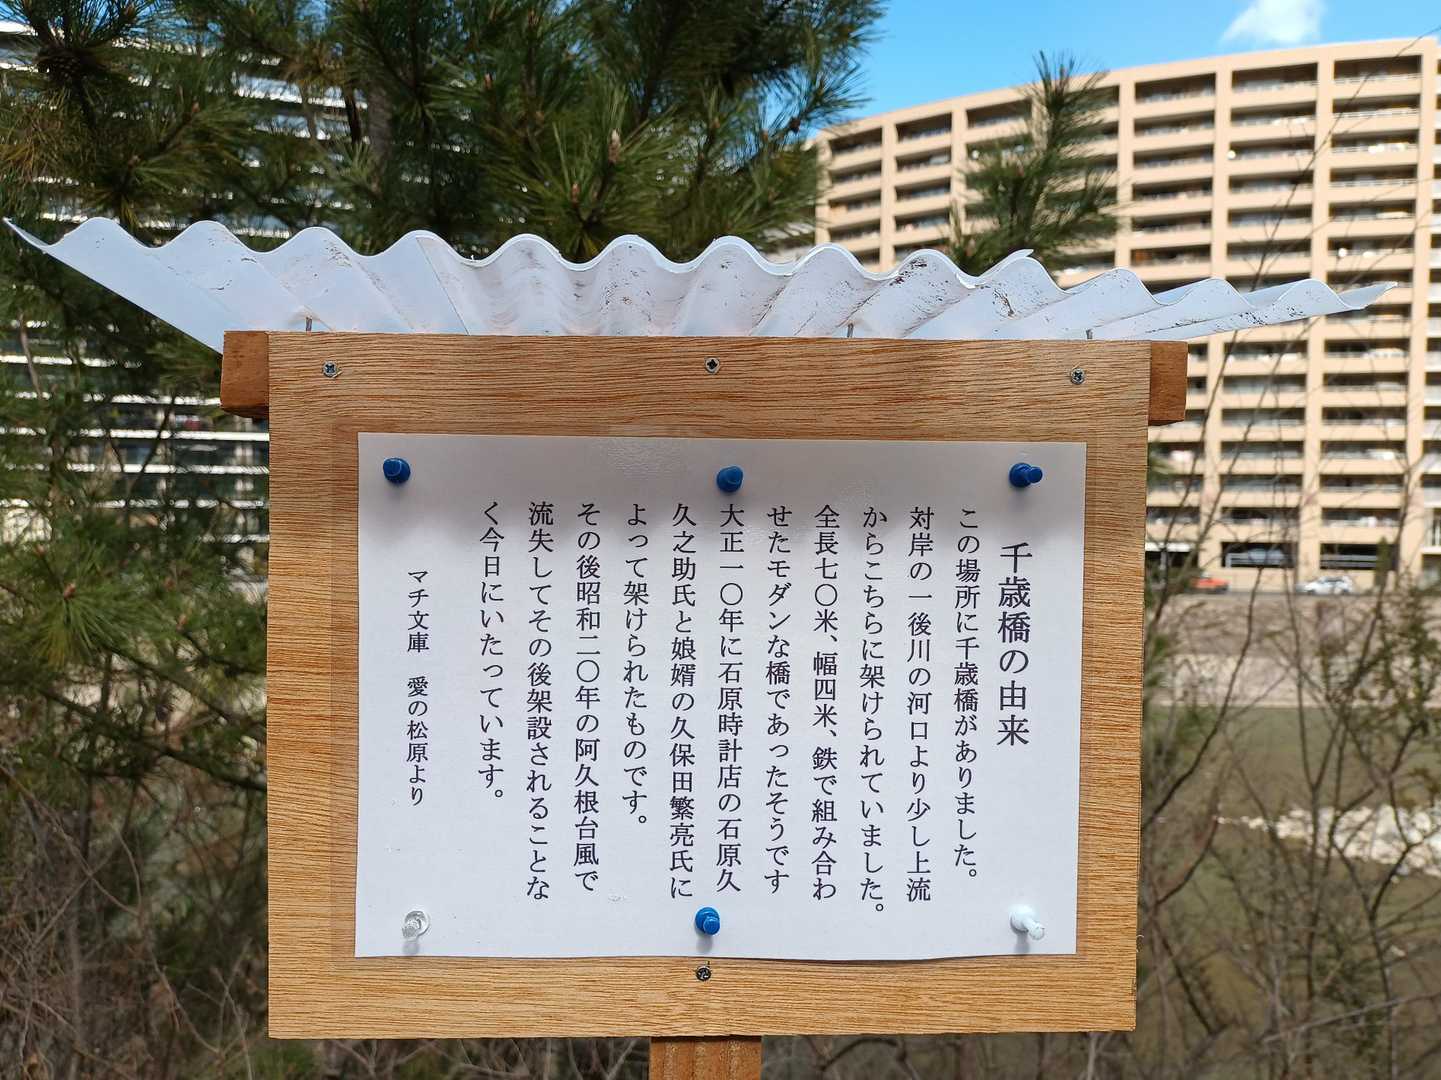 千歳橋の由来
この場所に千歳橋がありました。
対岸の一後川の河口より少し上流
からこちらに架けられていました。
全長七〇米、幅四米、鉄で組み合わ
せたモダンな橋であったそうです
大正一〇年に石原時計店の石原久
久之助氏と娘婿の久保田繁亮氏に
よって架けられたものです。
その後昭和二〇年の阿久根台風で
流失してその後架設されることな
く今日にいたっています。
マチ文庫　愛の松原より